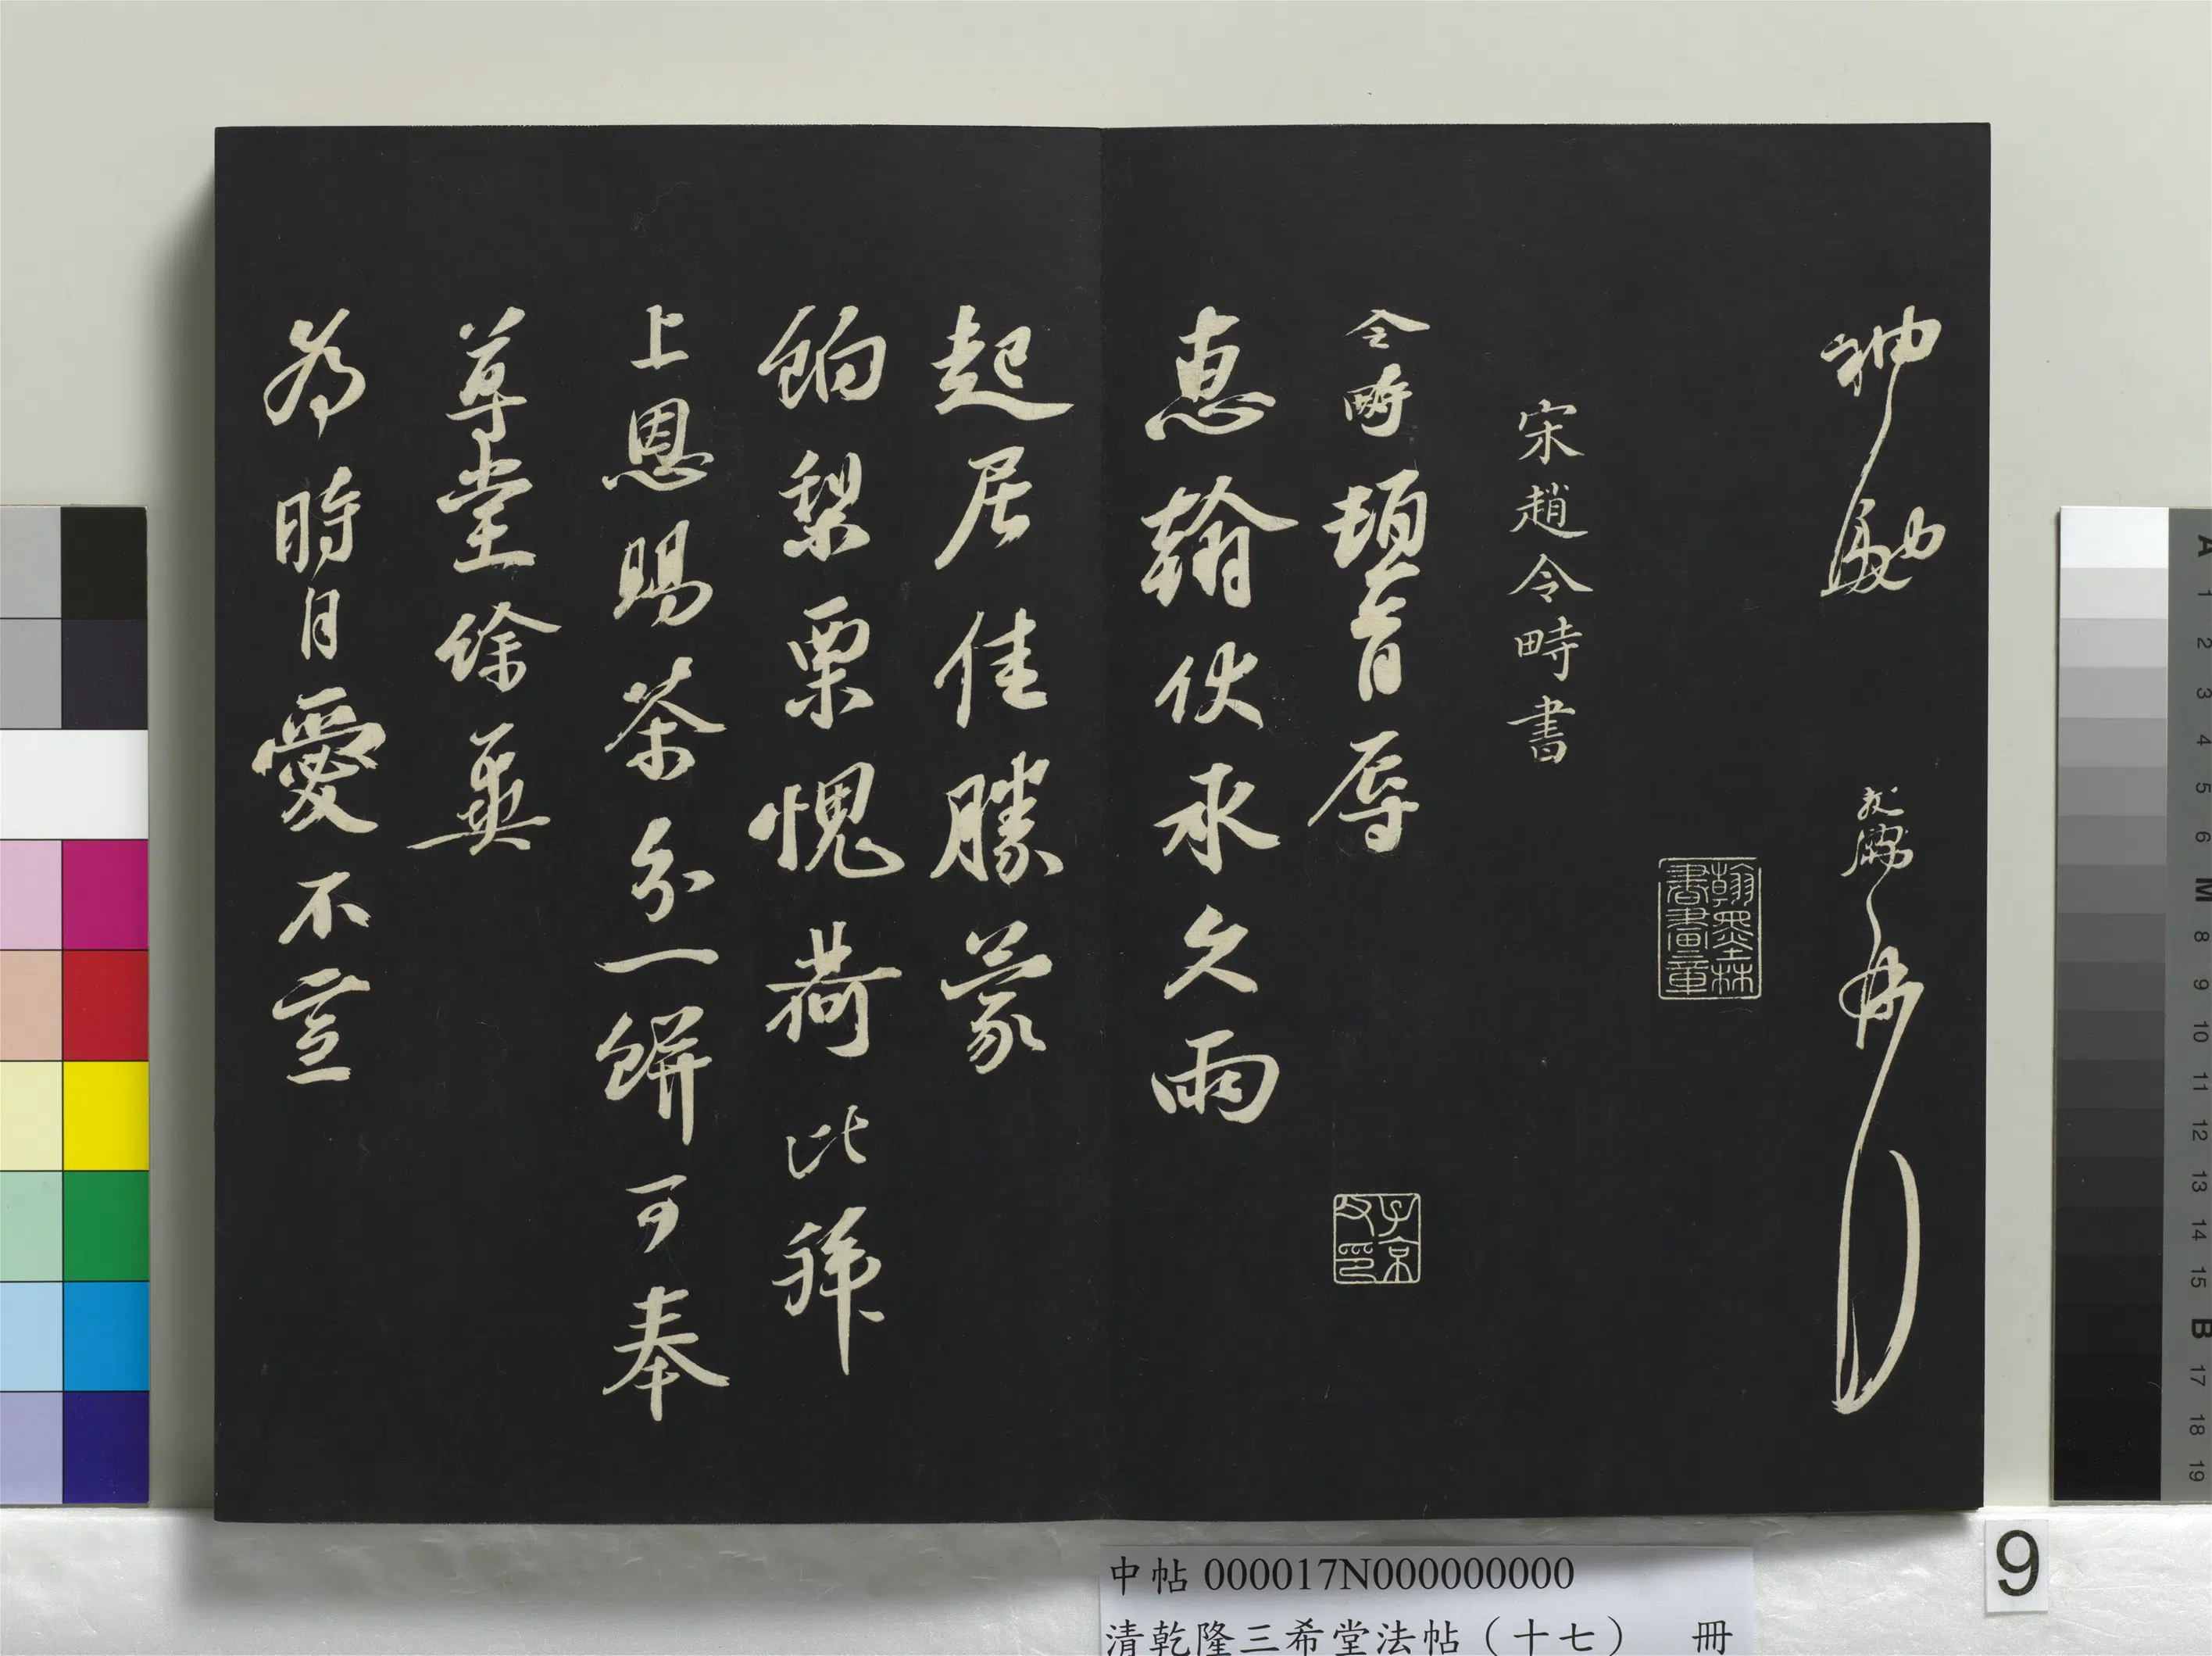 神勋
翰墨林
書畫章
宋趙令畤書
令畤頓首辱
子京
父印
惠翰伏承久雨
起居佳勝蒙
餉梨栗愧荷比拜
上恩賜茶分一餅可奉
尊堂餘冀
為時自愛不宣
中帖 000017N000000000
清乾隆三希堂法帖（十七） 冊
9
A
1
2
3
4
5
6
M
8
9
10
11
12
13
14
15
B
17
18
19